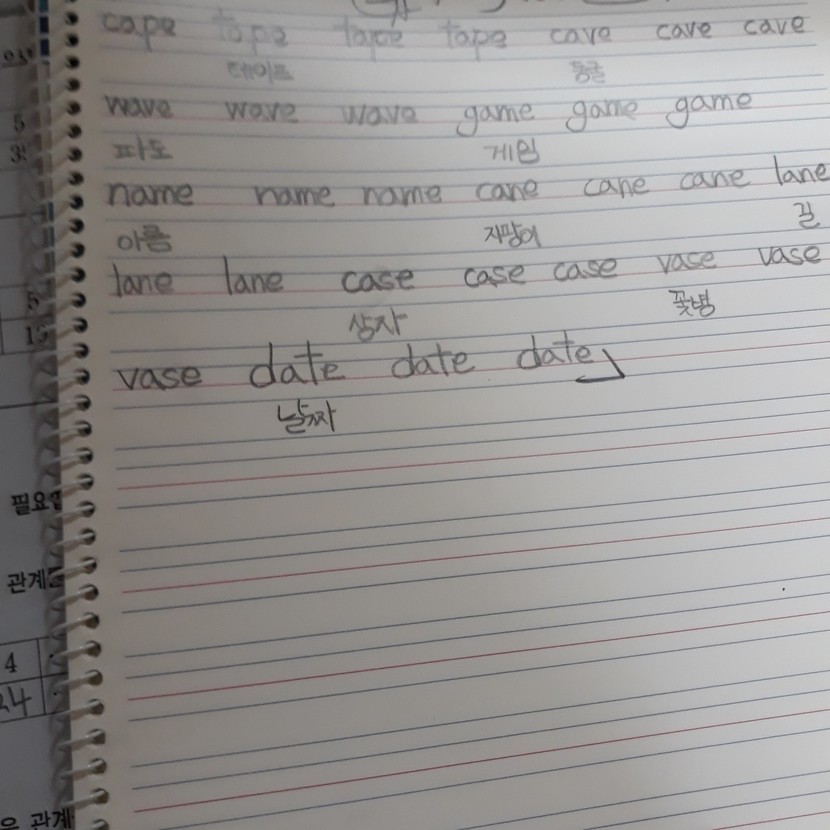 cape tape tape tape cave cave cave
테이프 동굴
wave wave wave game game game
파도 게임
name name name cane cane cane lane
이름 지팡이 길
lane lane case case case vase vase
상자 꽃병
vase date date date
날짜
필요
관계
4
24
은 관계